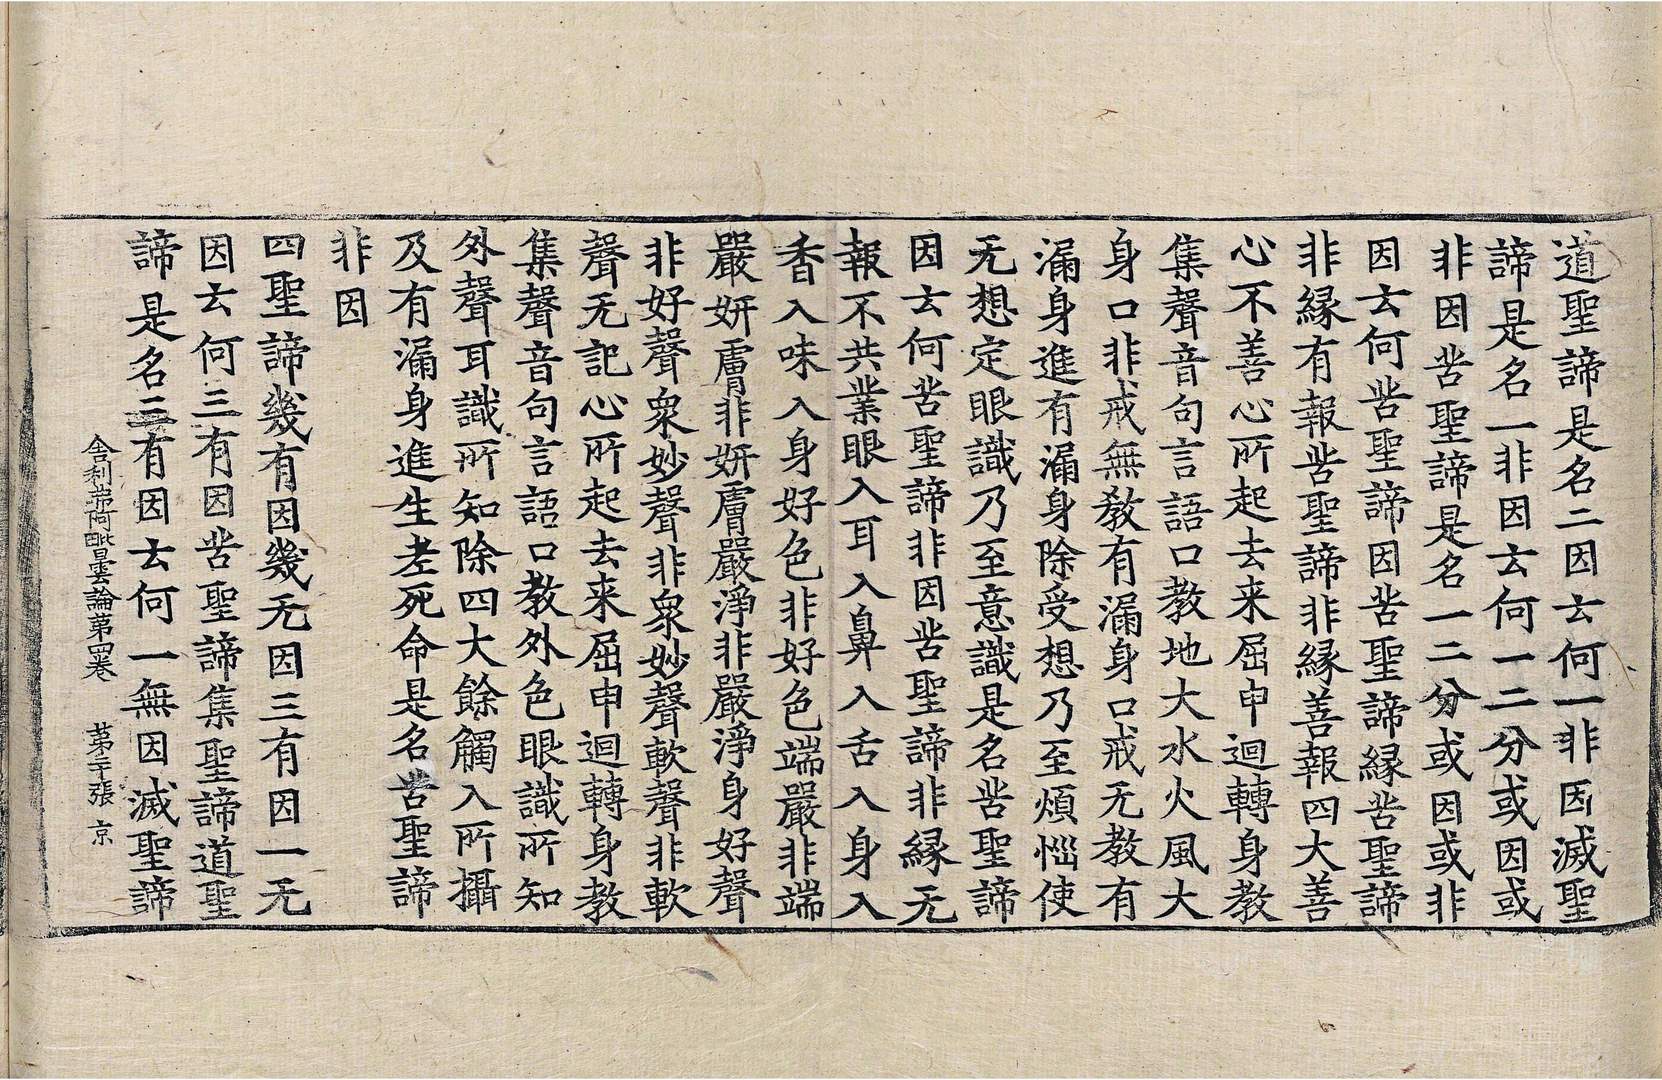 道聖諦是名二因云何一非因滅聖
諦是名一非因云何一二分或因或
非因苦聖諦是名一二分或因或非
因云何苦聖諦因苦聖諦緣苦聖諦
非緣有報苦聖諦非緣善報四大善
心不善心所起去来屈申迴轉身教
集聲音句言語口教地大水火風大
身口非戒無教有漏身口戒无教有
漏身進有漏身除受想乃至煩惱使
无想定眼識乃至意識是名苦聖諦
因云何苦聖諦非因苦聖諦非緣无
報不共業眼入耳入鼻入舌入身入
香入味入身好色非好色端嚴非端
嚴妍膚非妍膚嚴淨非嚴淨身好聲
非好聲衆妙聲非衆妙聲軟聲非軟
聲无記心所起去来屈申迴轉身教
集聲音句言語口教外色眼識所知
外聲耳識所知除四大餘觸入所攝
及有漏身進生老死命是名苦聖諦
非因
四聖諦幾有因幾无因三有因一无
因云何三有因苦聖諦集聖諦道聖
諦是名三有因云何一無因滅聖諦
舍利弗阿毗曇論第四卷 第二十張 京